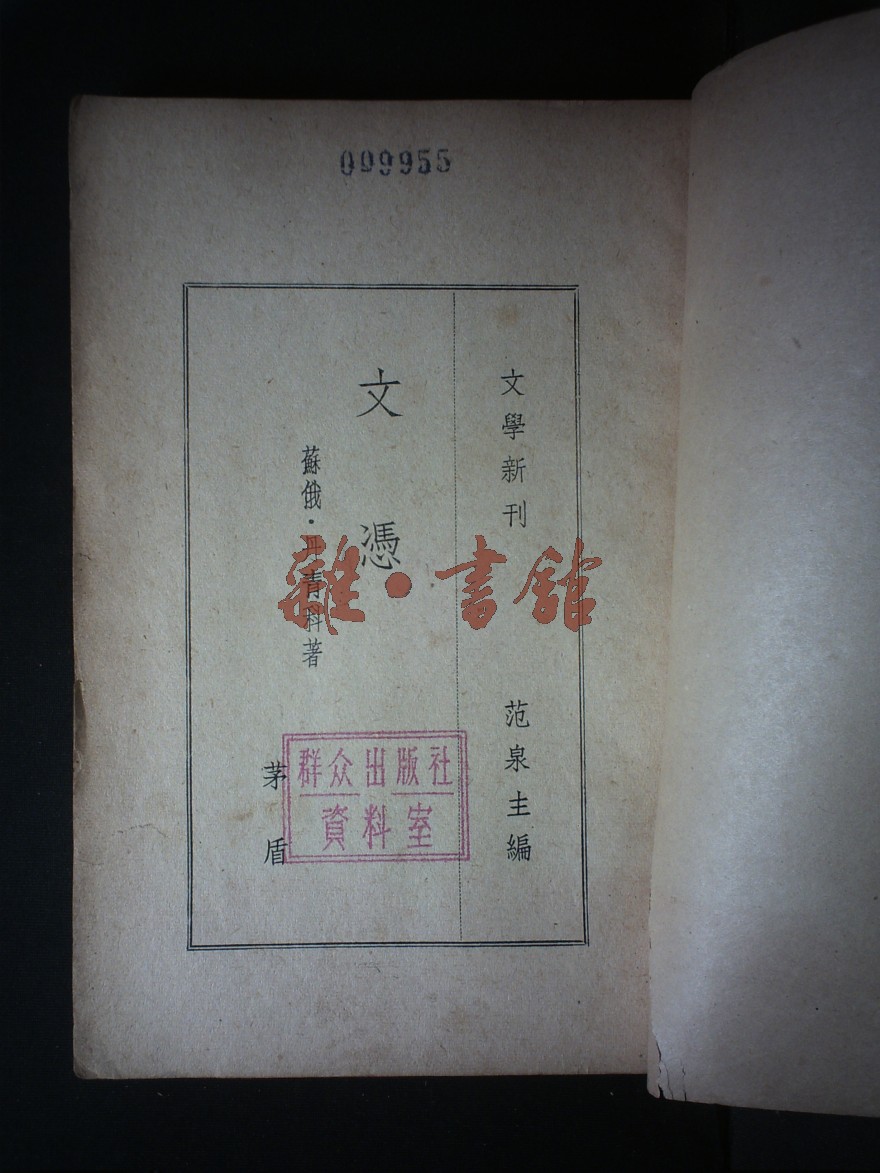 099955
文學新刊
范泉主編
文憑
蘇俄·丹青科著
茅盾
群众出版社
資料室
雜·書館